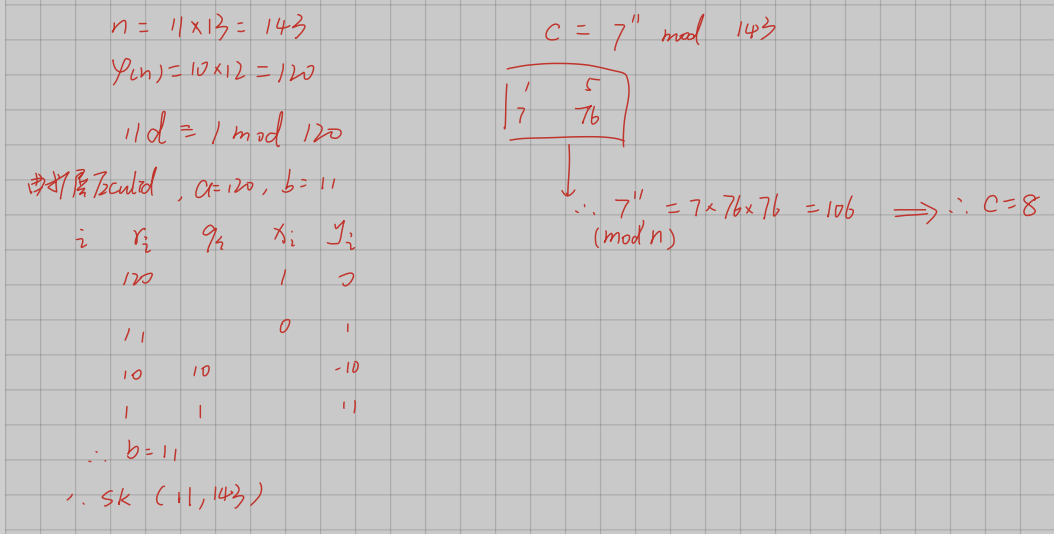 n = 11×13 = 143
φ(n) = 10×12 = 120
11d ≡ 1 mod 120
由扩展 Euclid, a=120, b=11
i ri qi xi yi
120 1 0
11 0 1
10 10 -10
1 1 11
∴ b=11
∴ sk (11, 143)
C = 7^11 mod 143
1 5
7 76
∴ 7^11 = 7×76×76 = 106 ⟹ ∴ C=8
(mod n)